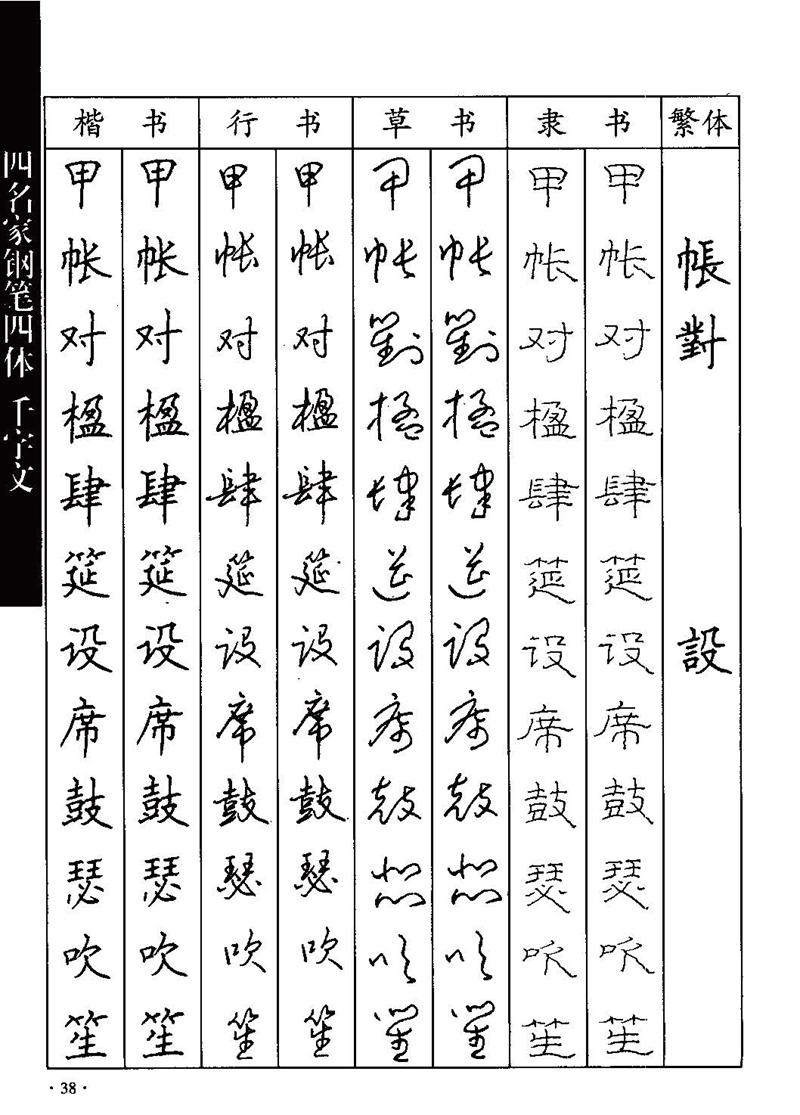 四名家钢笔四体 千字文
楷书 行书 草书 隶书 繁体
甲 甲 甲 甲 甲 甲 甲 甲
帐 帐 帐 帐 帐 帐 帐 帐 帳
对 对 对 对 對 對 对 对 對
楹 楹 楹 楹 楹 楹 楹 楹
肆 肆 肆 肆 肆 肆 肆 肆
筵 筵 筵 筵 筵 筵 筵 筵
设 设 设 设 设 设 设 设 設
席 席 席 席 席 席 席 席
鼓 鼓 鼓 鼓 鼓 鼓 鼓 鼓
瑟 瑟 瑟 瑟 瑟 瑟 瑟 瑟
吹 吹 吹 吹 吹 吹 吹 吹
笙 笙 笙 笙 笙 笙 笙 笙
·38·